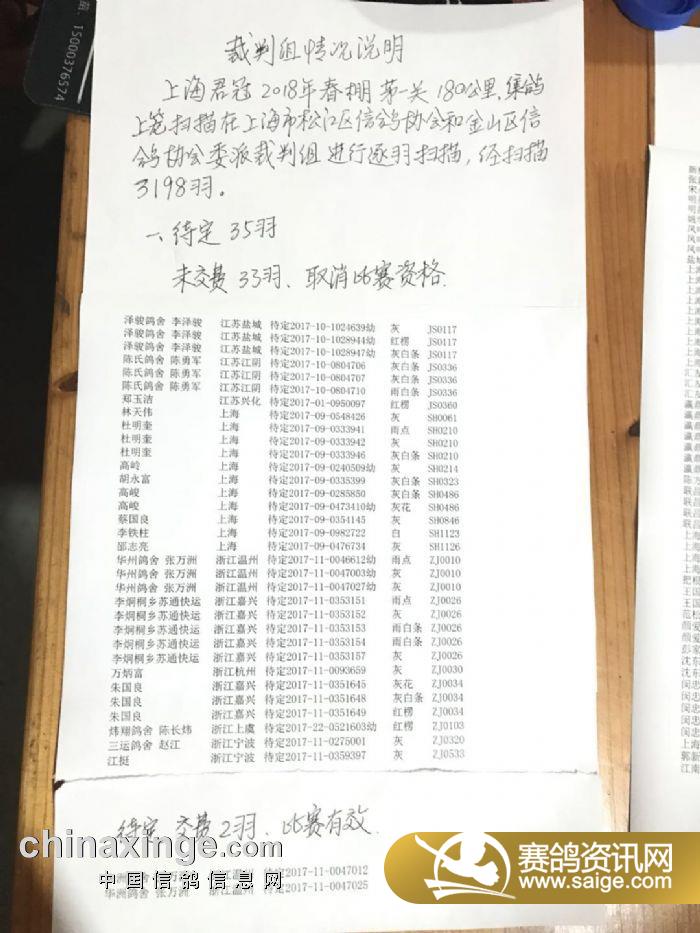 15000376574
裁判组情况说明
上海君冠2018年春棚第一关180公里,集鸽
上笼扫描在上海市松江区信鸽协会和金山区信
鸽协会委派裁判组进行逐羽扫描,经扫描
3198羽。
一、待定35羽
未交费33羽、取消比赛资格.
泽骏鸽舍 李泽骏 江苏盐城 待定2017-10-1024639幼 灰 JS0117
泽骏鸽舍 李泽骏 江苏盐城 待定2017-10-1028944幼 红楞 JS0117
泽骏鸽舍 李泽骏 江苏盐城 待定2017-10-1028947幼 灰白条 JS0117
陈氏鸽舍 陈勇军 江苏江阴 待定2017-10-0804706 灰白条 JS0336
陈氏鸽舍 陈勇军 江苏江阴 待定2017-10-0804707 灰白条 JS0336
陈氏鸽舍 陈勇军 江苏江阴 待定2017-10-0804710 雨白条 JS0336
郑玉洁 江苏兴化 待定2017-01-0950097 红楞 JS0360
林天伟 上海 待定2017-09-0548426 灰 SH0061
杜明奎 上海 待定2017-09-0333941 雨点 SH0210
杜明奎 上海 待定2017-09-0333942 灰 SH0210
杜明奎 上海 待定2017-09-0333946 灰白条 SH0210
高岭 上海 待定2017-09-0240509幼 灰 SH0214
胡永富 上海 待定2017-09-0335399 灰白条 SH0323
高峻 上海 待定2017-09-0285850 灰白条 SH0486
高峻 上海 待定2017-09-0473410幼 灰花 SH0486
蔡国良 上海 待定2017-09-0354145 灰 SH0846
李铁柱 上海 待定2017-09-0982722 白 SH1123
邵志亮 上海 待定2017-09-0476734 灰 SH1126
华州鸽舍 张万洲 浙江温州 待定2017-11-0046612幼 雨点 ZJ0010
华州鸽舍 张万洲 浙江温州 待定2017-11-0047003幼 灰 ZJ0010
华州鸽舍 张万洲 浙江温州 待定2017-11-0047027幼 灰 ZJ0010
李炯桐乡苏通快运 浙江嘉兴 待定2017-11-0353151 雨点 ZJ0026
李炯桐乡苏通快运 浙江嘉兴 待定2017-11-0353152 灰 ZJ0026
李炯桐乡苏通快运 浙江嘉兴 待定2017-11-0353153 雨白条 ZJ0026
李炯桐乡苏通快运 浙江嘉兴 待定2017-11-0353154 雨白条 ZJ0026
李炯桐乡苏通快运 浙江嘉兴 待定2017-11-0353157 灰 ZJ0026
万炳富 浙江杭州 待定2017-11-0093659 灰 ZJ0030
朱国良 浙江嘉兴 待定2017-11-0351645 灰花 ZJ0034
朱国良 浙江嘉兴 待定2017-11-0351648 灰白条 ZJ0034
朱国良 浙江嘉兴 待定2017-11-0351649 红楞 ZJ0034
炜翔鸽舍 陈长炜 浙江上虞 待定2017-22-0521603幼 红楞 ZJ0103
三运鸽舍 赵江 浙江宁波 待定2017-11-0275001 灰 ZJ0320
江挺 浙江宁波 待定2017-11-0359397 灰 ZJ0533
待定 交费2羽、比赛有效.
张万洲 待定2017-11-0047012
华洲鸽舍 张万洲 待定2017-11-0047025
chinaxinge.com
中国信鸽信息网
赛鸽资讯网
www.saige.com